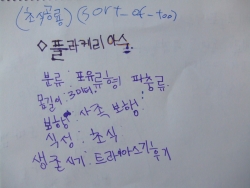 (초식공룡) (sort-of-too)
◇플라케리아스
분류: 포유류형 파충류
몸길이: 3미터.
보행: 사족 보행.
식성: 초식
생존시기: 트라이아스기 후기